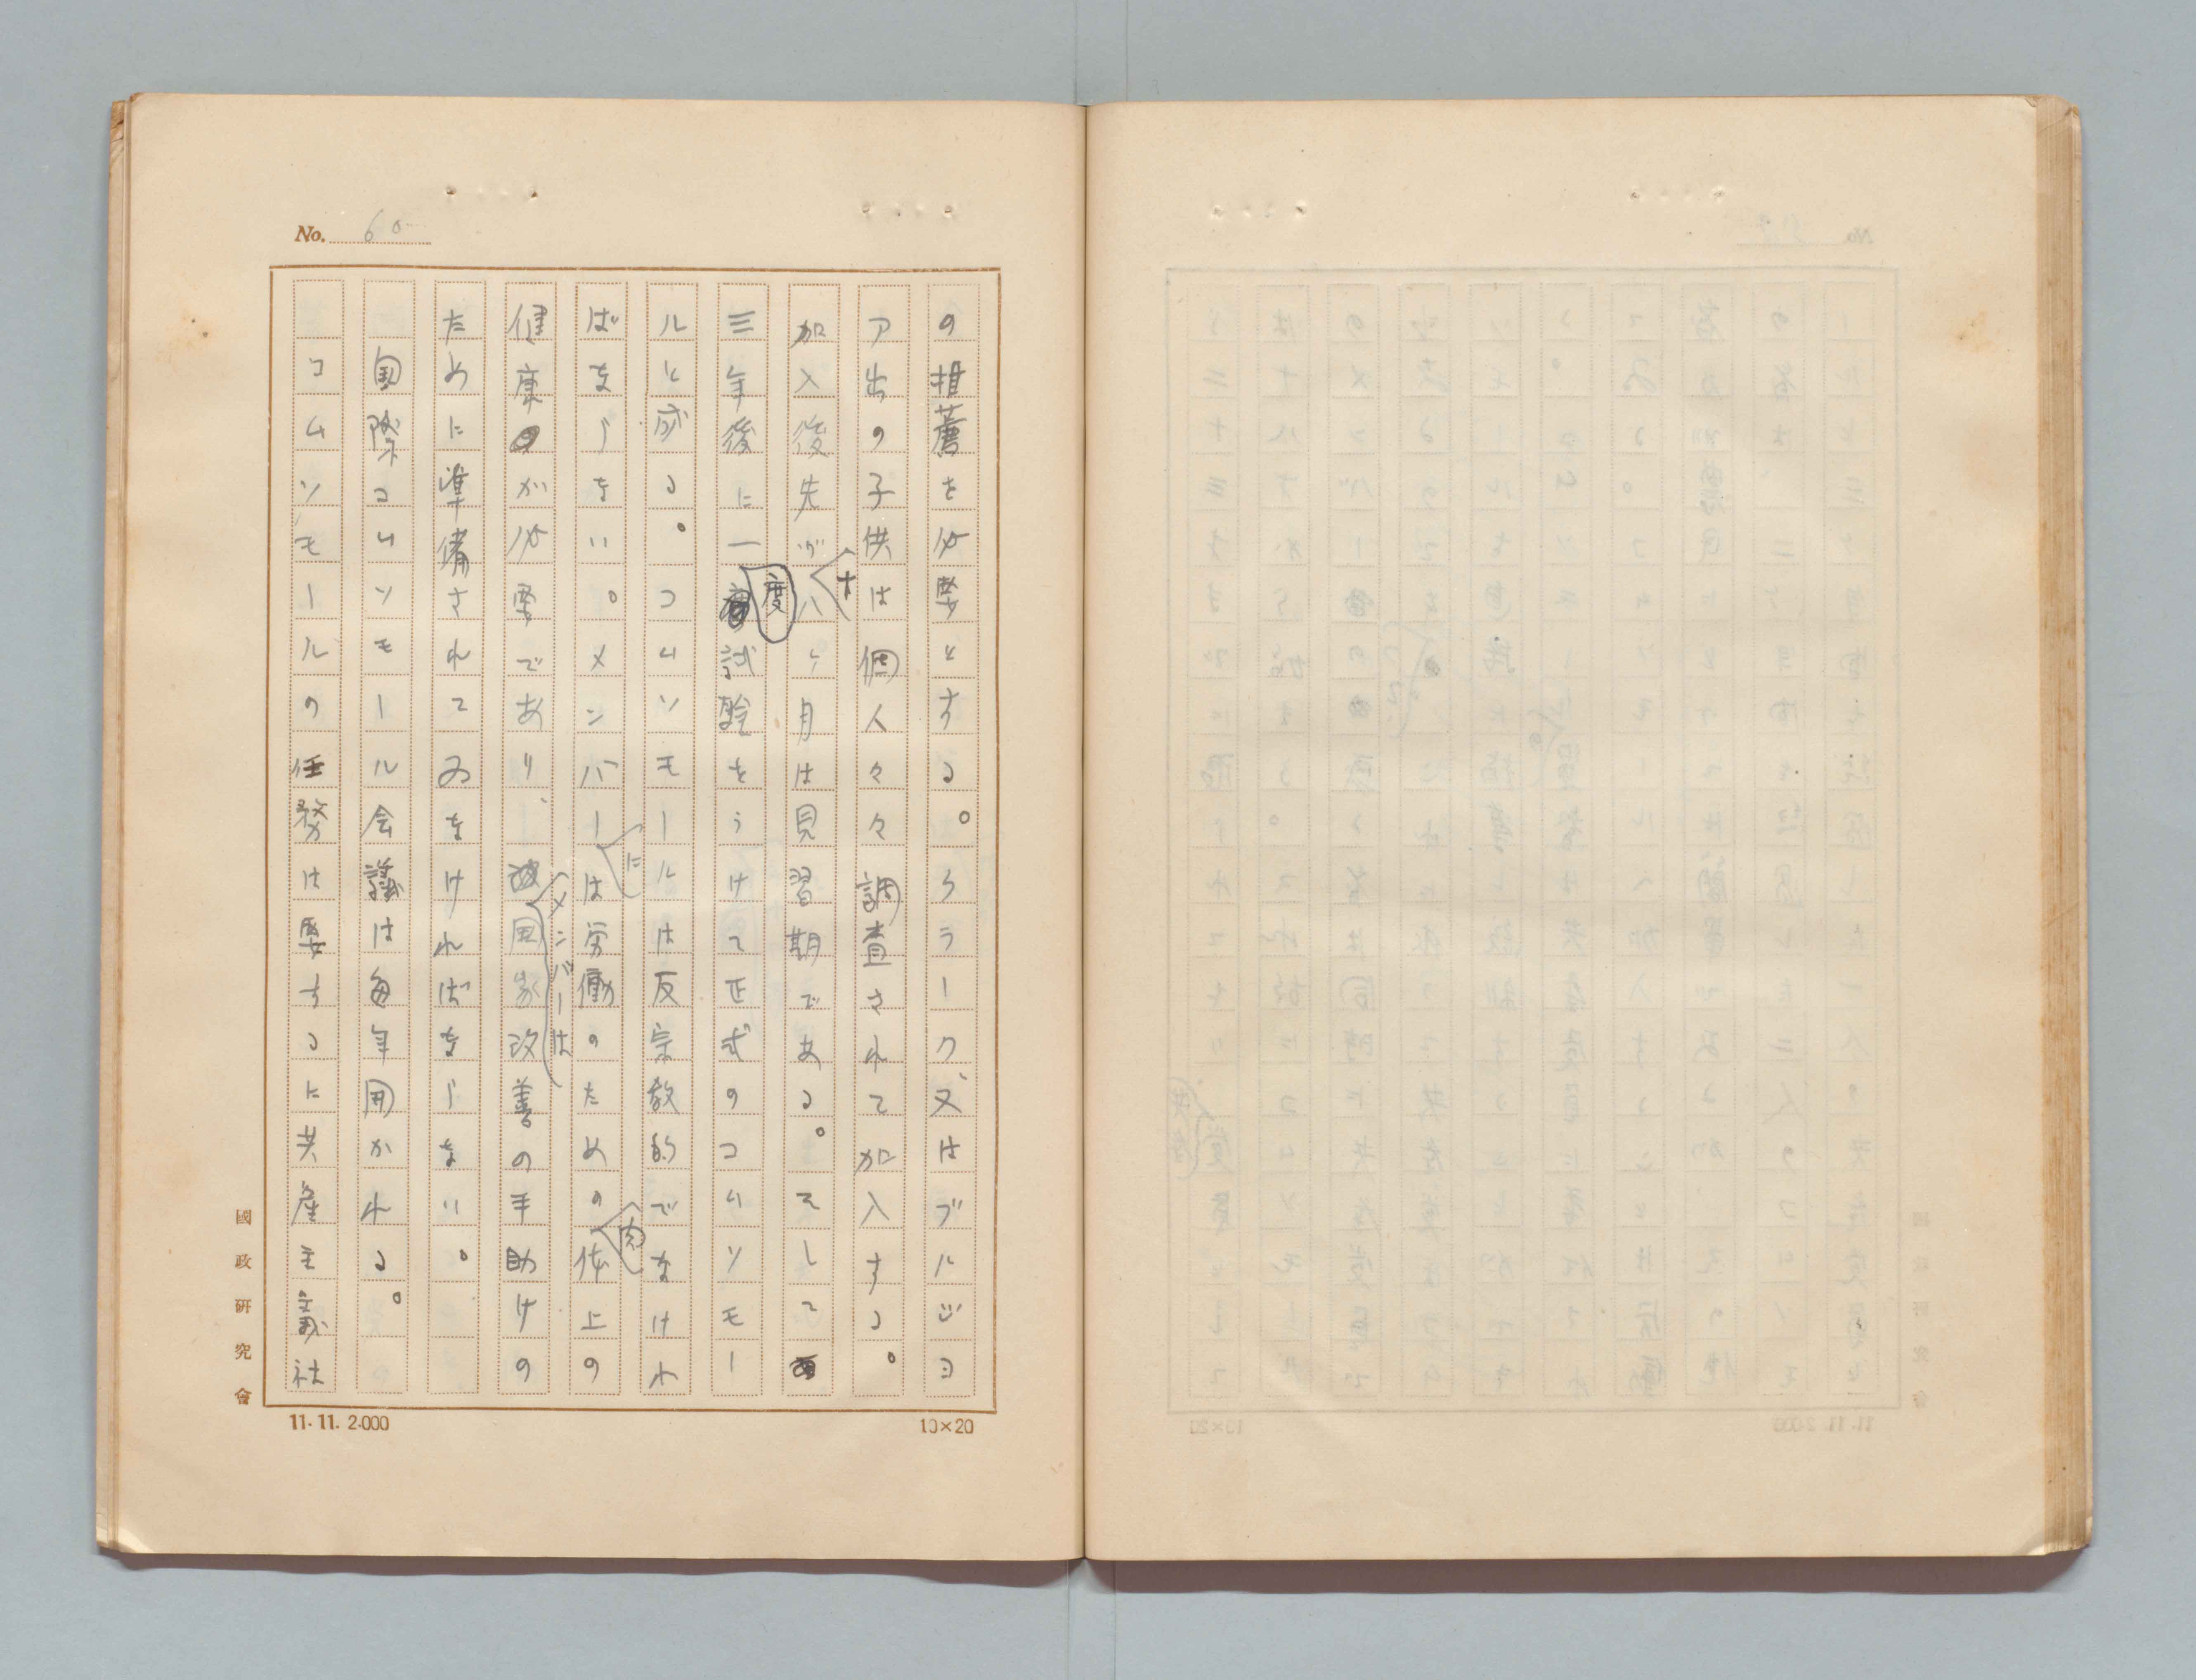 No. 60
の推薦を必要とする。クラーク、又はブルジヨ
ア出の子供は個人々々調査されて加入する。
加入後先づ十八ヶ月は見習期である。そして
三年後に一度試験をうけて正式のコムソモー
ルと成る。コムソモールは反宗教的でなけれ
ばならない。メンバーには労働のための肉体上の
健康が必要であり、メンバーは国家改善の手助けの
ために準備されてゐなければならない。
国際コムソモール会議は毎年開かれる。
コムソモールの任務は要するに共産主義社
國政研究會
11.11. 2.000
10×20